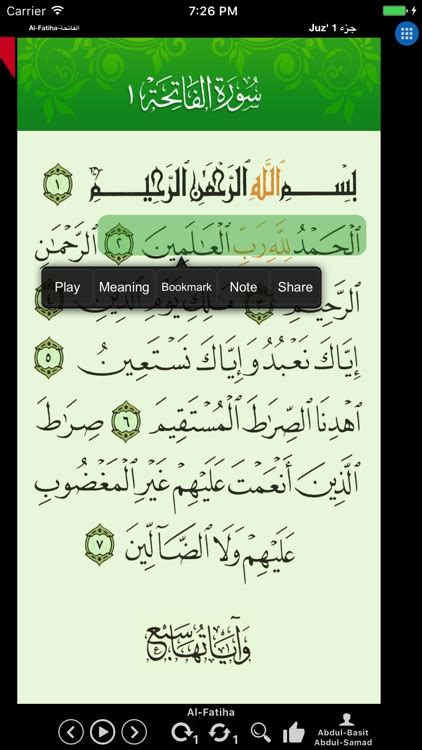 Carrier 7:26 PM
Al-Fatiha-الفاتحة Juz' 1 جزء
سُورَةُ الفَاتِحَة ١
بِسْمِ اللَّهِ الرَّحْمَٰنِ الرَّحِيمِ ١
الْحَمْدُ لِلَّهِ رَبِّ الْعَالَمِينَ ٢ الرَّحْمَٰنِ
Play Meaning Bookmark Note Share
الرَّحِيمِ ٣ مَالِكِ يَوْمِ الدِّينِ ٤
إِيَّاكَ نَعْبُدُ وَإِيَّاكَ نَسْتَعِينُ ٥
اهْدِنَا الصِّرَاطَ الْمُسْتَقِيمَ ٦ صِرَاطَ
الَّذِينَ أَنْعَمْتَ عَلَيْهِمْ غَيْرِ الْمَغْضُوبِ
عَلَيْهِمْ وَلَا الضَّالِّينَ ٧
وَآيَاتُهَا سَبْع
Al-Fatiha
1 1
Abdul-Basit
Abdul-Samad